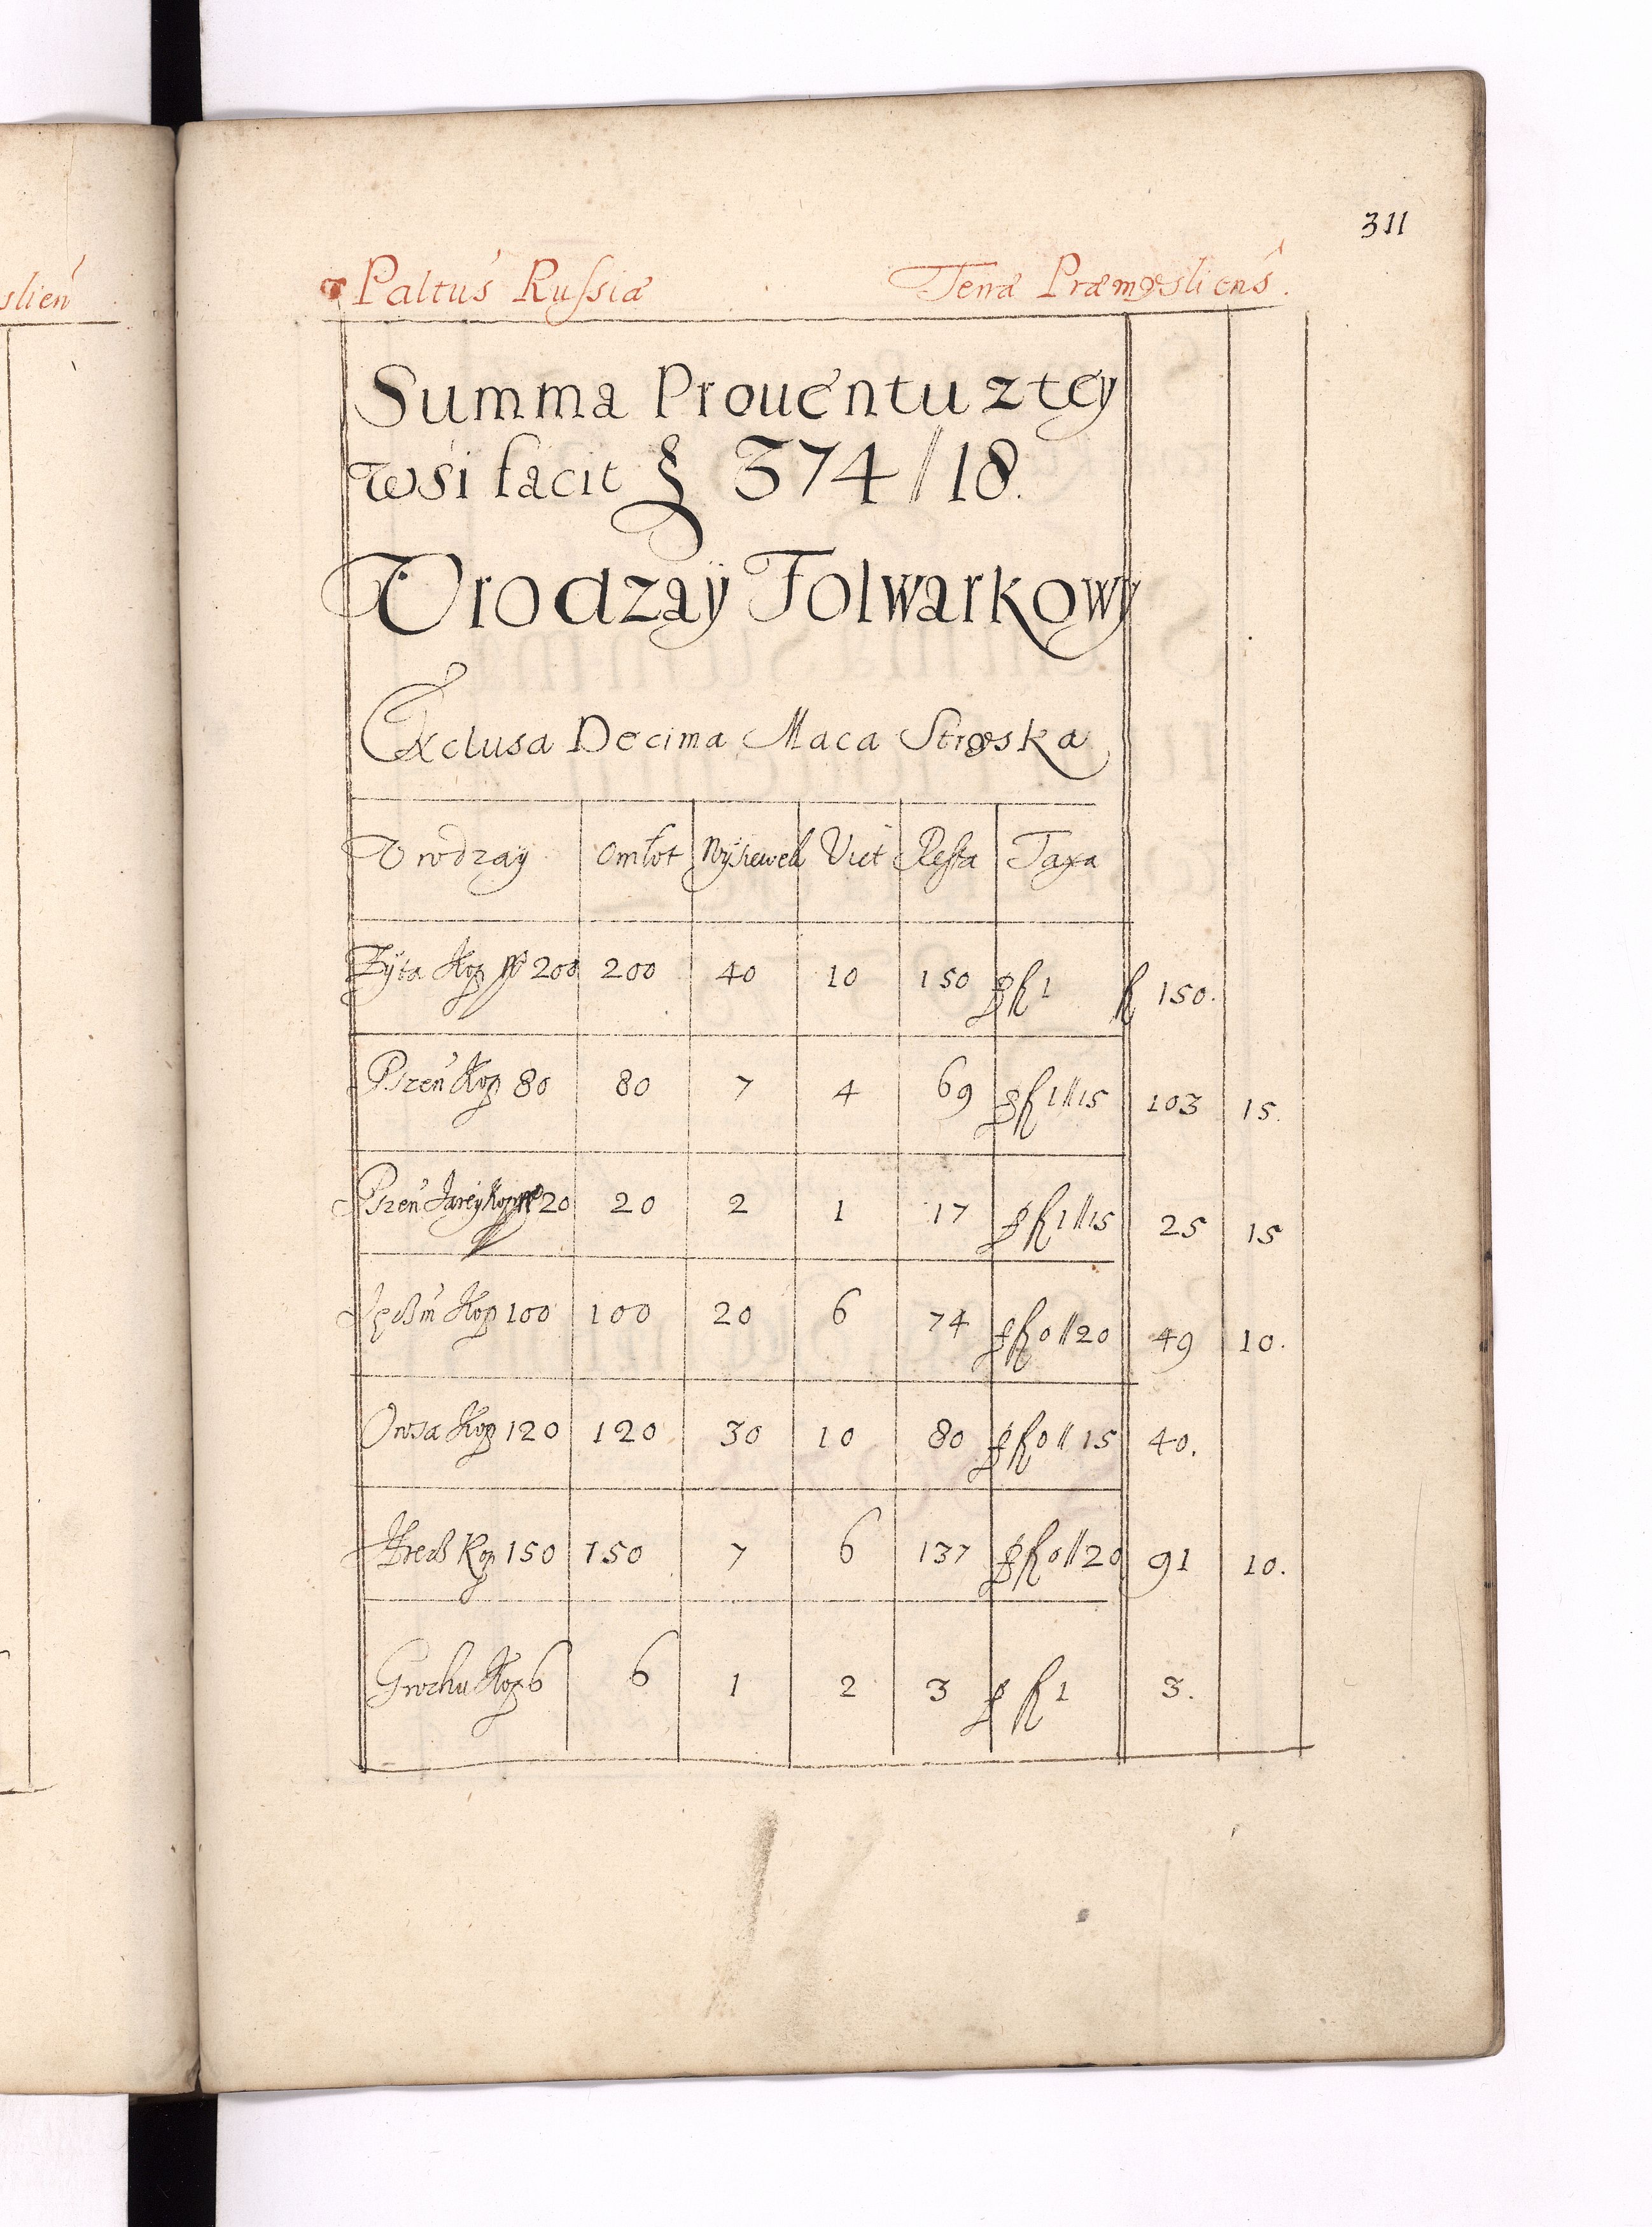 slień
311
Paltus Russiæ Terræ Præmysliens.
Summa Prouentu z tey
wśi facit 374//18.
Vrodzaÿ Folwarkowy
Exclusa Decima Maca Stryska
Vrodzay Omłot Wyśiewek Vict Resta Taxa
Zÿta Kop 200 200 40 10 150 fl 1 fl 150.
Pszeń Kop 80 80 7 4 69 fl 1//15 103 15.
Pszeń Jarey Kop 20 20 2 1 17 fl 1//15 25 15
Kop 100 100 20 6 74 fl 0//20 49 10.
Owsa Kop 120 120 30 10 80 fl 0//15 40.
Kop 150 150 7 6 137 fl 0//20 91 10.
Grochu Kop 6 6 1 2 3 fl 1 3.